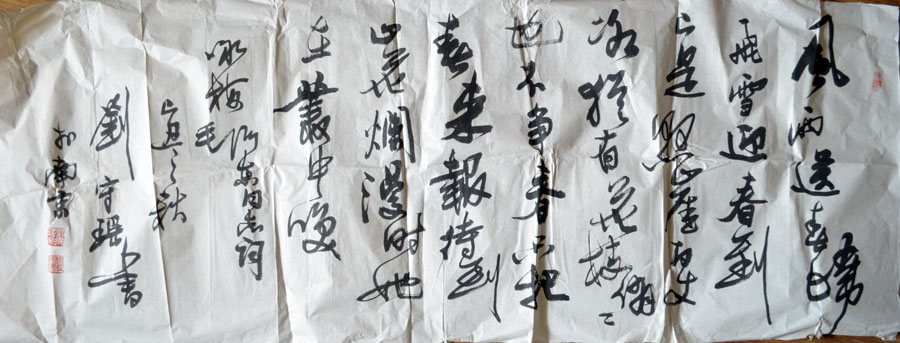 風雨送春歸
飛雪迎春到
已是懸崖百丈
冰猶有花枝俏々
也不争春只把
春來報待到
山花爛漫時她
在叢中笑
咏梅
毛澤东同志詞
之秋
劉守瑶書
於南京